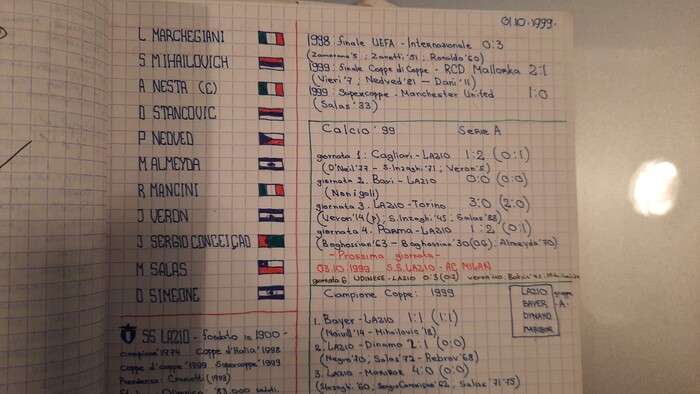 01.10.1999.
L MARCHEGIANI
S MIHAILOVICH
A NESTA (C)
D STANCOVIC
P NEDVED
M ALMEYDA
R MANCINI
J VERON
J SERGIO CONCEIÇAO
M SALAS
D SIMEONE
SS LAZIO - fondato in 1900 -
campione 1974 Coppe d'Italia 1998
Coppe d'coppe 1999 Supercoppe 1999
Cragnotti (1998)
83.000
1998 finale UEFA - Internazionale 0:3
(Zamorano'5 ; Zanetti'51 ; Ronaldo'60)
1999: finale Coppe di Coppe - RCD Mallorka 2:1
(Vieri'7, Nedved'81 - Dani'11)
1999: Supercoppe - Manchester United 1:0
(Salas '33)
Calcio '99 SERIE A
giornata 1: Cagliari - LAZIO 1:2 (0:1)
(O'Neil'77 - S.Inzaghi'71 ; Veron'5)
giornata 2. Bari - LAZIO 0:0 (0:0)
(Non i goli)
giornata 3. LAZIO - Torino 3:0 (2:0)
(Veron'14(p), S.Inzaghi '45, Salas'88)
giornata 4. Parma - LAZIO 1:2 (0:1)
(Boghossian'63 - Boghossian'30(OG); Almeyda'70)
- Prossima giornata -
03.10.1999 S.S. LAZIO - AC MILAN
giornata 6. UDINESE - LAZIO 0:3 (0:2) veron'40
Ciampione Coppe: 1999
LAZIO
BAYER
DYNAMO
MARIBOR
gruppa
- A -
1. Bayer - LAZIO 1:1 (1:1)
(Neivill'14 - Mihailovic'18)
2. LAZIO - Dinamo 2:1 (0:0)
(Negro'70, Salas'72 - Rebrov'68)
3. LAZIO - MARIBOR 4:0 (0:0)
(SInzaghi '60, Sergio Conceiçao '62, Salas '71 '75)